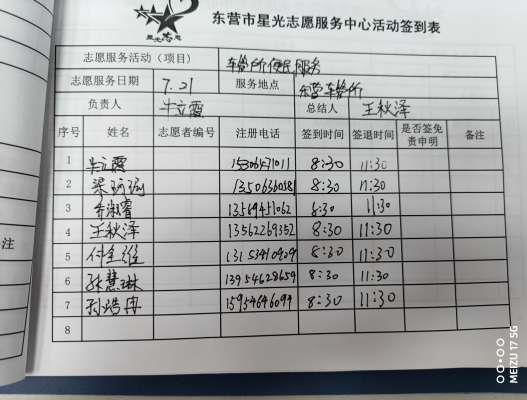 星光志愿
东营市星光志愿服务中心活动签到表
志愿服务活动（项目） 车管所便民服务
志愿服务日期 7.21 服务地点 东营车管所
负责人 牛立霞 总结人 王秋泽
序号 姓名 志愿者编号 注册电话 签到时间 签退时间 是否签免责申明 备注
1 牛立霞 8:30 11:30
2 梁 13506360581 8:30 11:30
3 8:30 11:30
4 王秋泽 13562269352 8:30 11:30
5 付 8:30 11:30
6 孙慧琳 13954628659 8:30 11:30
7 孙浩冉 15954646099 8:30 11:30
8
注
MEIZU 17 5G